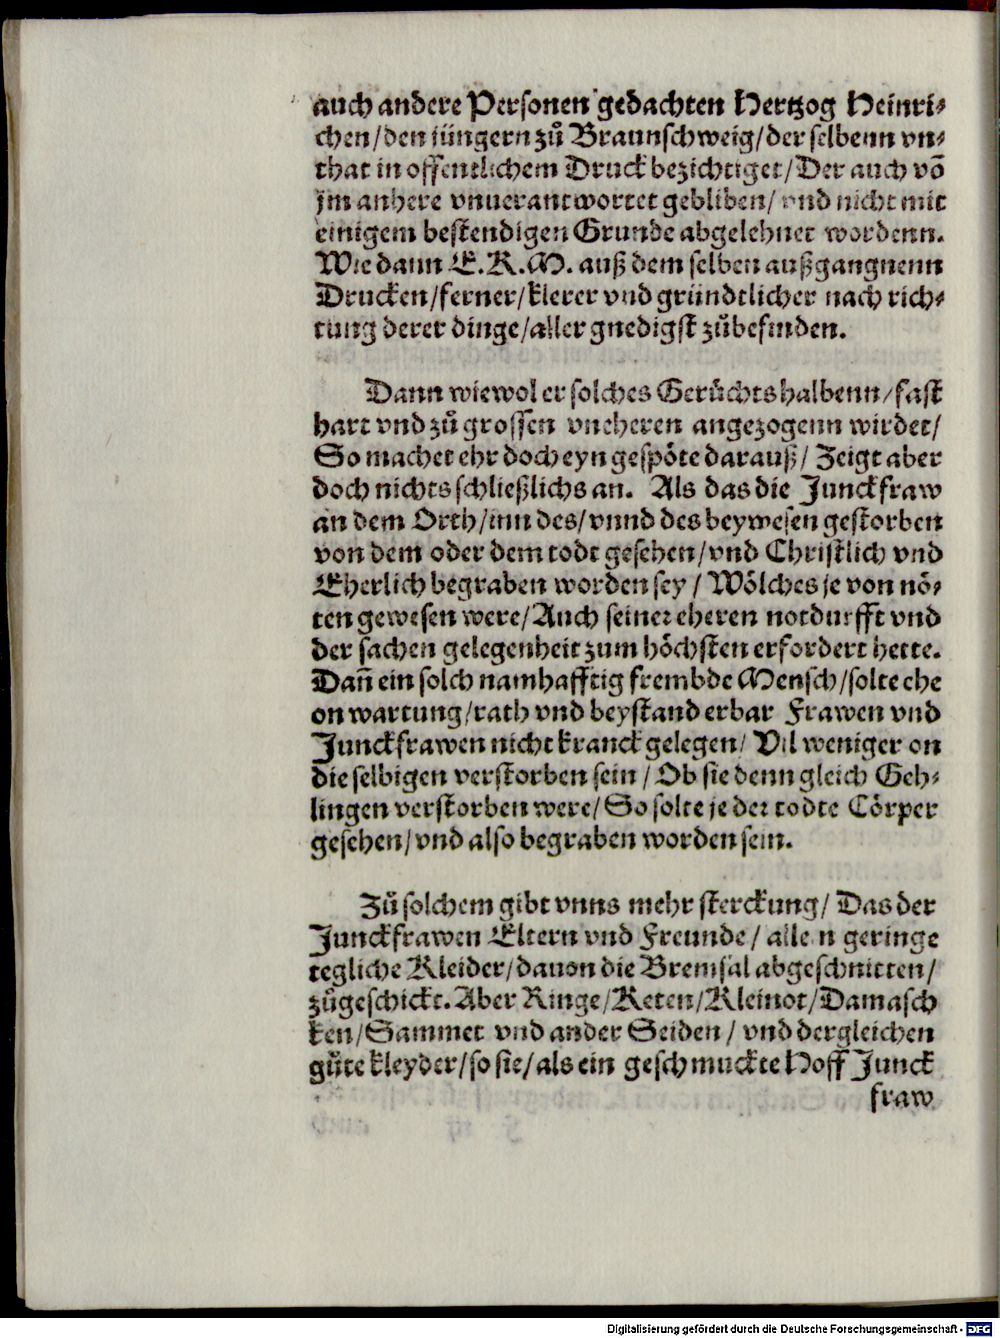 auch andere Personen gedachten Hertzog Heinri⸗
chen/den jüngern zů Braunschweig/der selbenn vn⸗
that in offentlichem Druck bezichtiget/Der auch võ
jm anhere vnuerantwortet gebliben/ vnd nicht mit
einigem bestendigen Grunde abgelehnet wordenn.
Wie dann E.K.M. auß dem selben außgangnenn
Drucken/ferner/klerer vnd gründtlicher nach rich⸗
tung derer dinge/aller gnedigst zůbefinden.
Dann wiewol er solches Gerüchts halbenn/fast
hart vnd zů grossen vneheren angezogenn wirdet/
So machet ehr doch eyn gespöte darauß/ Zeigt aber
doch nichts schließlichs an. Als das die Junckfraw
an dem Orth/inn des/vnnd des beywesen gestorben
von dem oder dem todt gesehen/vnd Christlich vnd
Eherlich begraben worden sey / Wölches je von nö⸗
ten gewesen were/Auch seiner eheren notdurfft vnd
der sachen gelegenheit zum höchsten erfordert hette.
Dañ ein solch namhafftig frembde Mensch/solte ehe
on wartung/rath vnd beystand erbar Frawen vnd
Junckfrawen nicht kranck gelegen/ Vil weniger on
die selbigen verstorben sein / Ob sie denn gleich Geh⸗
lingen verstorben were/So solte je der todte Cörper
gesehen/vnd also begraben worden sein.
Zů solchem gibt vnns mehr sterckung/ Das der
Junckfrawen Eltern vnd Freunde/ allein geringe
tegliche Kleider/dauon die Bremsal abgeschnitten/
zůgeschickt. Aber Ringe/Keten/Kleinot/Damasch
ken/Sammet vnd ander Seiden / vnd dergleichen
gůte kleyder/so sie/als ein geschmuckte Hoff Junck
fraw
Digitalisierung gefördert durch die Deutsche Forschungsgemeinschaft - DFG